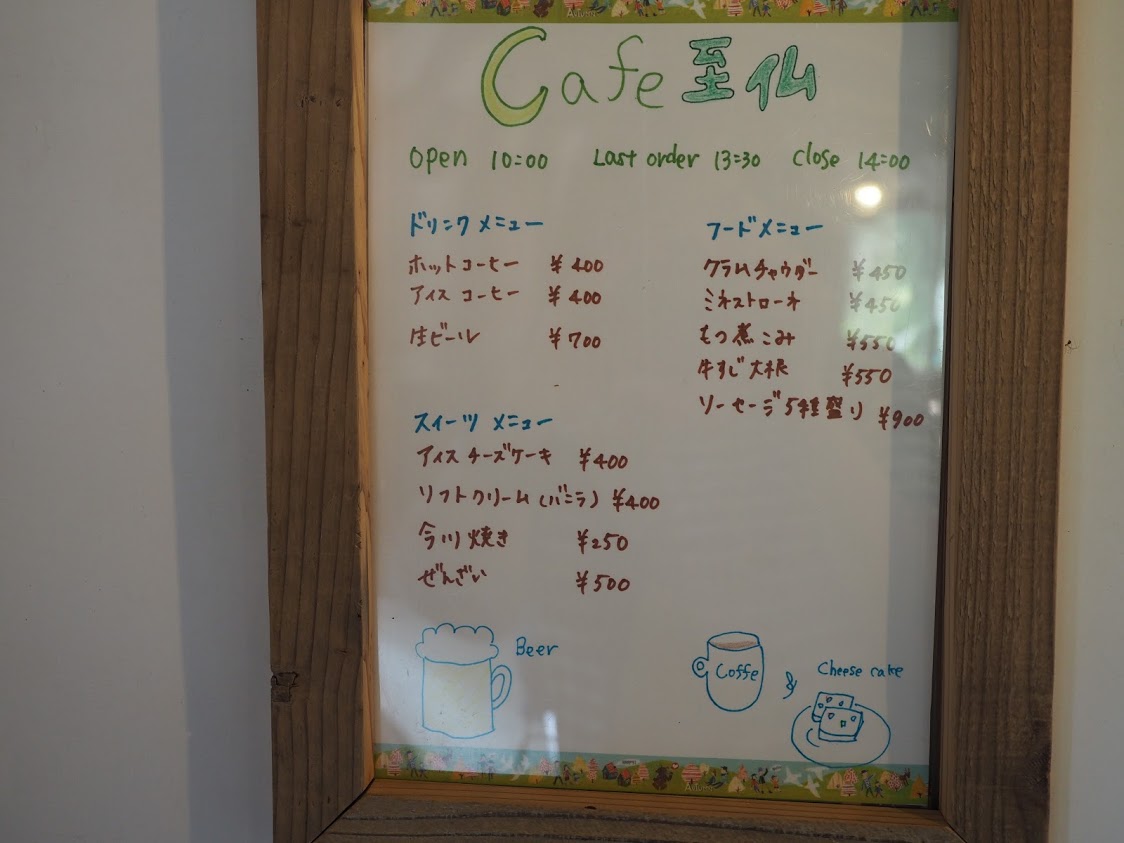 Autumn
Cafe 至仏
open 10:00 Last order 13:30 close 14:00
ドリンク メニュー
ホットコーヒー ¥400
アイス コーヒー ¥400
生ビール ¥700
スイーツ メニュー
アイス チーズケーキ ¥400
ソフトクリーム(バニラ) ¥400
今川焼き ¥250
ぜんざい ¥500
フードメニュー
クラムチャウダー ¥450
ミネストローネ ¥450
もつ煮こみ ¥550
牛すじ大根 ¥550
ソーセージ5種盛り ¥900
Beer
Coffe
Cheese cake
Autumn